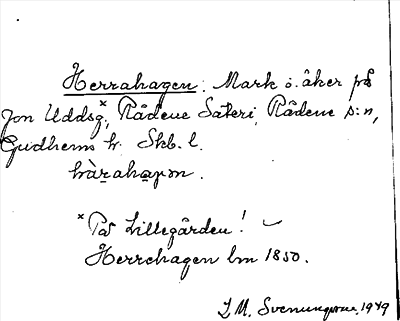 Herrahagen: Mark o. åker på
Jon Uddsg,ˣ Rådene Säteri, Rådene s:n,
Gudhems hr. Skb. l.
hàrahagən.
ˣ På Lillegården!
Herrehagen lm 1850.
I.M. Svenungsson, 1949